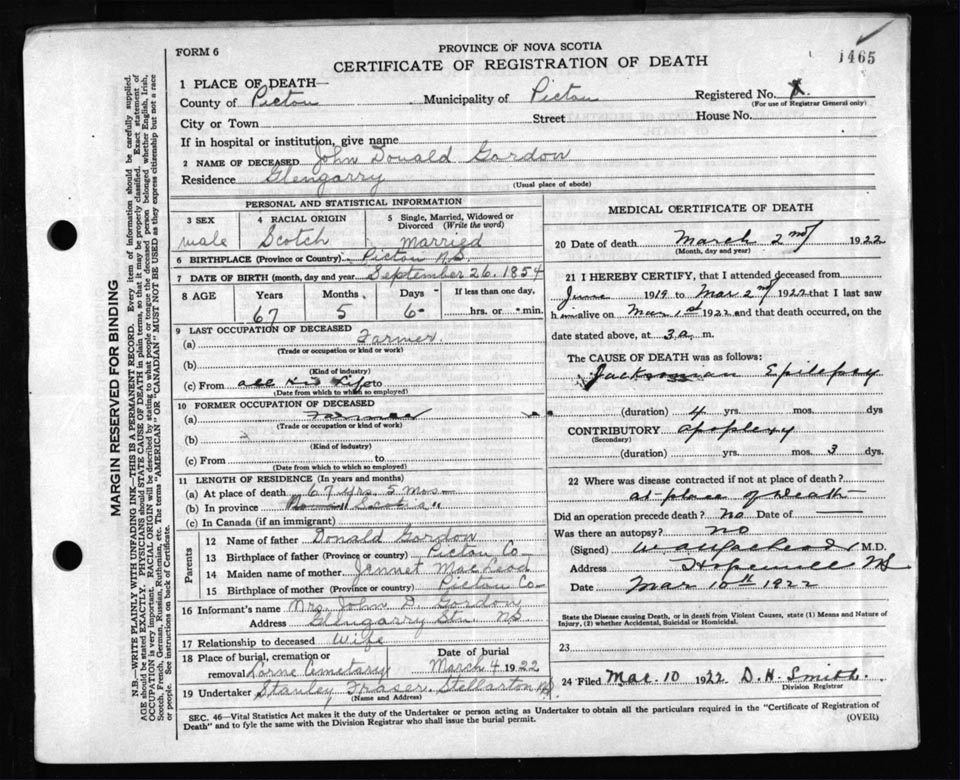 FORM 6
PROVINCE OF NOVA SCOTIA
CERTIFICATE OF REGISTRATION OF DEATH
1465
1 PLACE OF DEATH—
County of Pictou Municipality of Pictou Registered No. X
(For use of Registrar General only)
City or Town Street House No.
If in hospital or institution, give name
2 NAME OF DECEASED John Donald Gordon
Residence Glengarry
(Usual place of abode)
PERSONAL AND STATISTICAL INFORMATION
3 SEX male
4 RACIAL ORIGIN Scotch
5 Single, Married, Widowed or Divorced (Write the word) married
6 BIRTHPLACE (Province or Country) Pictou N.S.
7 DATE OF BIRTH (month, day and year) September 26. 1854
8 AGE Years Months Days If less than one day,
67 5 6 hrs. or min.
9 LAST OCCUPATION OF DECEASED
(a) Farmer.
(Trade or occupation or kind or work)
(b)
(Kind of industry)
(c) From all his Life to
(Date from which to which so employed)
10 FORMER OCCUPATION OF DECEASED
(a) Farmer
(Trade or occupation or kind of work)
(b)
(Kind of industry)
(c) From to
(Date from which to which so employed)
11 LENGTH OF RESIDENCE (In years and months)
(a) At place of death 67 yrs. 5 Mos—
(b) In province Nova Scotia "
(c) In Canada (if an immigrant)
Parents
12 Name of father Donald Gordon
13 Birthplace of father (Province or country) Pictou Co—
14 Maiden name of mother Jennet MacLeod
15 Birthplace of mother (Province or country) Pictou Co—
16 Informant's name Mrs. John D. Gordon
Address Glengarry Stn. N.S.
17 Relationship to deceased Wife
18 Place of burial, cremation or removal Lorne Cemetary
Date of burial March 4 1922
19 Undertaker Stanley Fraser. Stellarton N.S.
(Name and Address)
MEDICAL CERTIFICATE OF DEATH
20 Date of death March 2nd 1922
(Month, day and year)
21 I HEREBY CERTIFY, that I attended deceased from
June 1919 to Mar 2nd 1922 that I last saw
him alive on Mar 1st 1922 and that death occurred, on the
date stated above, at 3 a. m.
The CAUSE OF DEATH was as follows:
Jacksonian Epilepsy
(duration) 4 yrs. mos. dys
CONTRIBUTORY apoplexy
(Secondary)
(duration) yrs. mos. 3 dys.
22 Where was disease contracted if not at place of death?
at place of Death
Did an operation precede death? No Date of
Was there an autopsy? No
(Signed) M.D.
Address Hopewell NS
Date Mar 10th 1922
State the Disease causing Death, or in death from Violent Causes, state (1) Means and Nature of
Injury, (2) whether Accidental, Suicidal or Homicidal.
23
24 Filed Mar. 10 1922 D. H. Smith.
Division Registrar
SEC. 46—Vital Statistics Act makes it the duty of the Undertaker or person acting as Undertaker to obtain all the particulars required in the "Certificate of Registration of
Death" and to fyle the same with the Division Registrar who shall issue the burial permit.
(OVER)
MARGIN RESERVED FOR BINDING
N.B.—WRITE PLAINLY WITH UNFADING INK—THIS IS A PERMANENT RECORD. Every item of information should be carefully supplied.
AGE should be stated EXACTLY. PHYSICIANS should STATE CAUSE OF DEATH in plain terms, so that it may be properly classified. Exact statement of
OCCUPATION is very important. RACIAL ORIGIN will be described by stating to what people or tongue the deceased person belonged whether English, Irish,
Scotch, French, German, Russian, Ruthenian, etc. The terms "AMERICAN" OR "CANADIAN" MUST NOT BE USED as they express citizenship but not a race
or people. See instructions on back of Certificate.